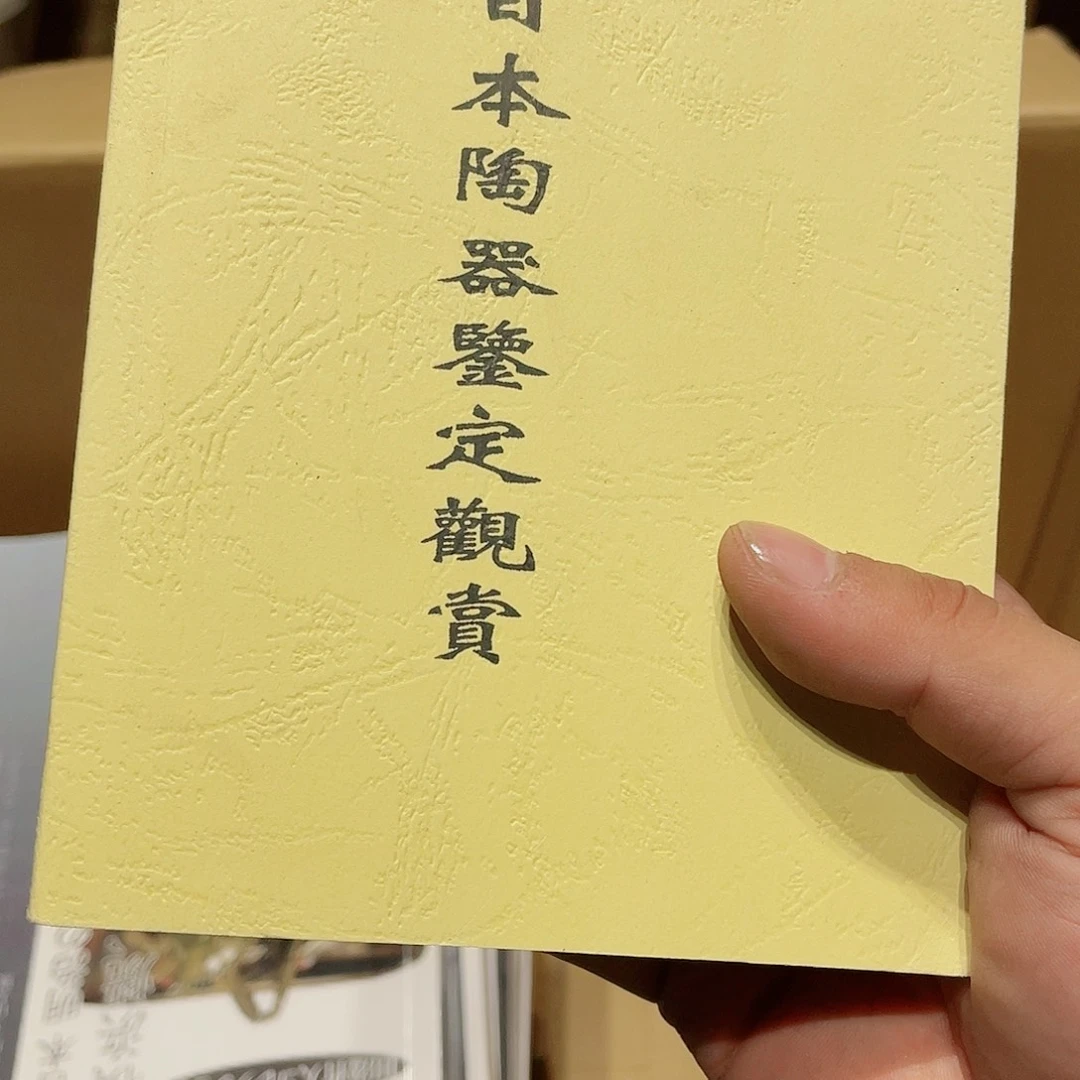 日本陶器鑒定觀賞